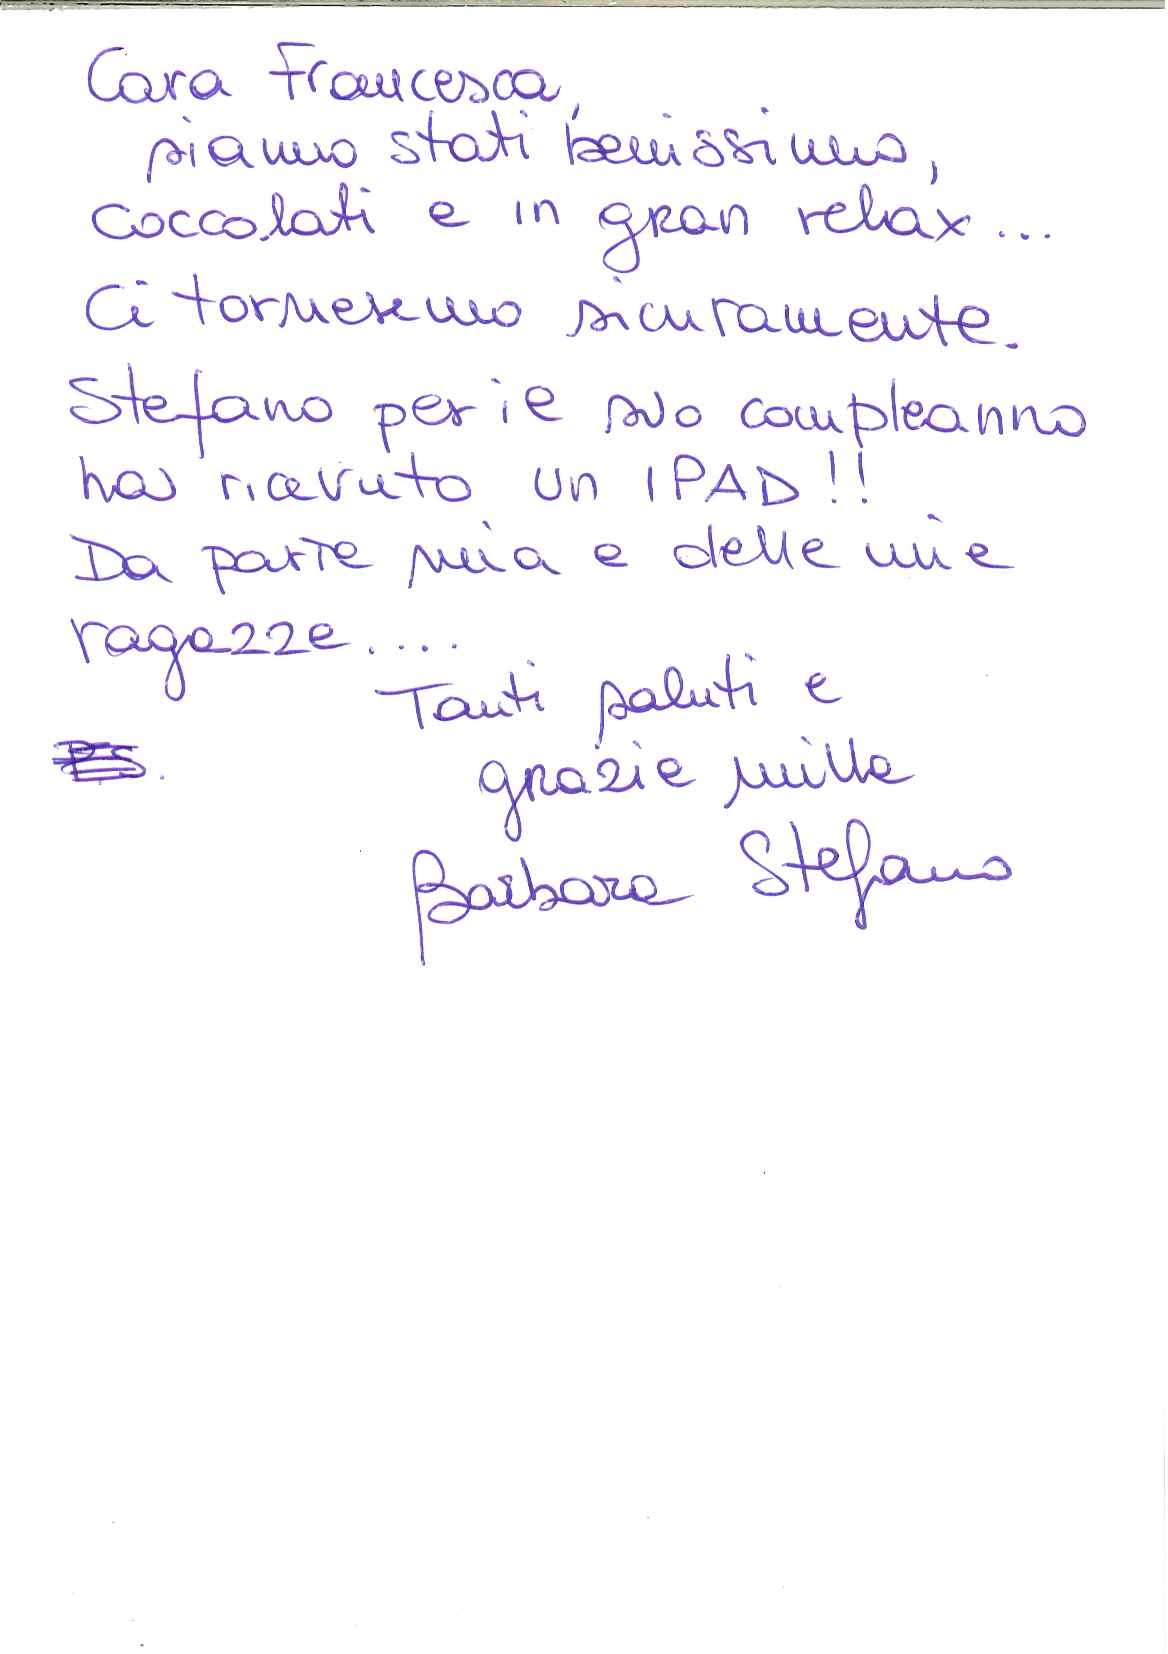 Cara Francesca,
siamo stati benissimo,
coccolati e in gran relax...
Ci torneremo sicuramente.
Stefano per il suo compleanno
ha ricevuto un IPAD!!
Da parte mia e delle mie
ragazze....
Tanti saluti e
grazie mille
Barbara Stefano